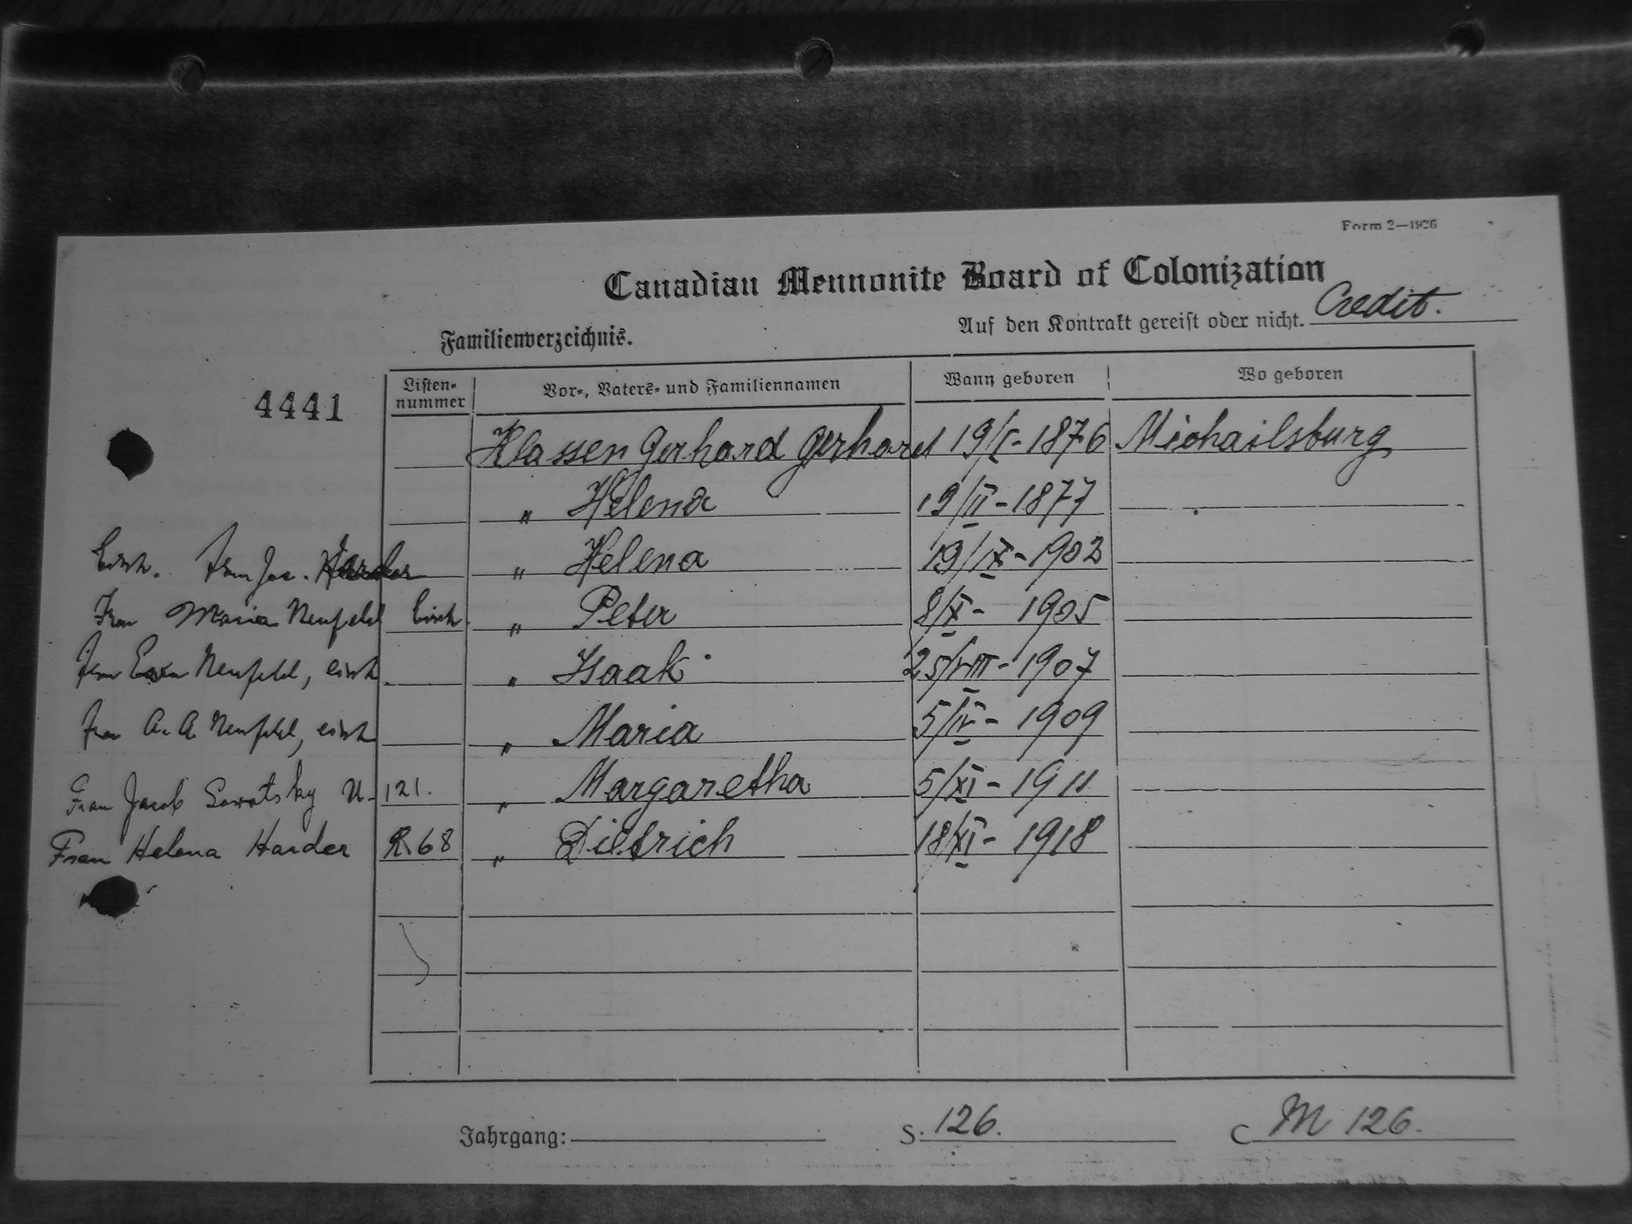 Form 2—1926
Canadian Mennonite Board of Colonization
Familienverzeichnis.
Auf den Kontrakt gereist oder nicht. Credit.
4441
Listen-
nummer
Vor-, Vaters- und Familiennamen
Wann geboren
Wo geboren
Klassen Gerhard Gerhard 19/I-1876 Michailsburg
" Helena 19/II-1877
Frau Jac. Harder " Helena 19/IX-1902
Frau Maria Neufeld " Peter 8/X- 1905
Frau Neufeld, " Isaak 25/VIII-1907
Frau A. A. Neufeld, " Maria 5/IV- 1909
Frau Jacob Sawatsky U- 121. " Margaretha 5/XI- 1911
Frau Helena Harder R.68 " Dietrich 18/XI- 1918
Jahrgang: S. 126. C M 126.